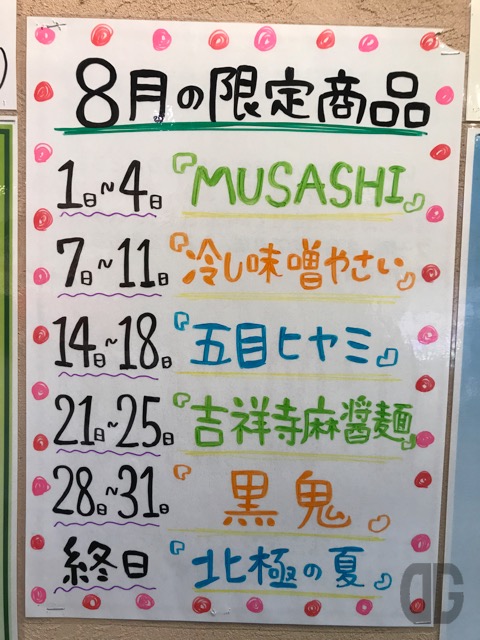 8月の限定商品
1日~4日 『MUSASHI』
7日~11日 『冷し味噌やさい』
14日~18日 『五目ヒヤミ』
21日~25日 『吉祥寺麻醤麺』
28日~31日 『黒鬼』
終日 『北極の夏』
DG